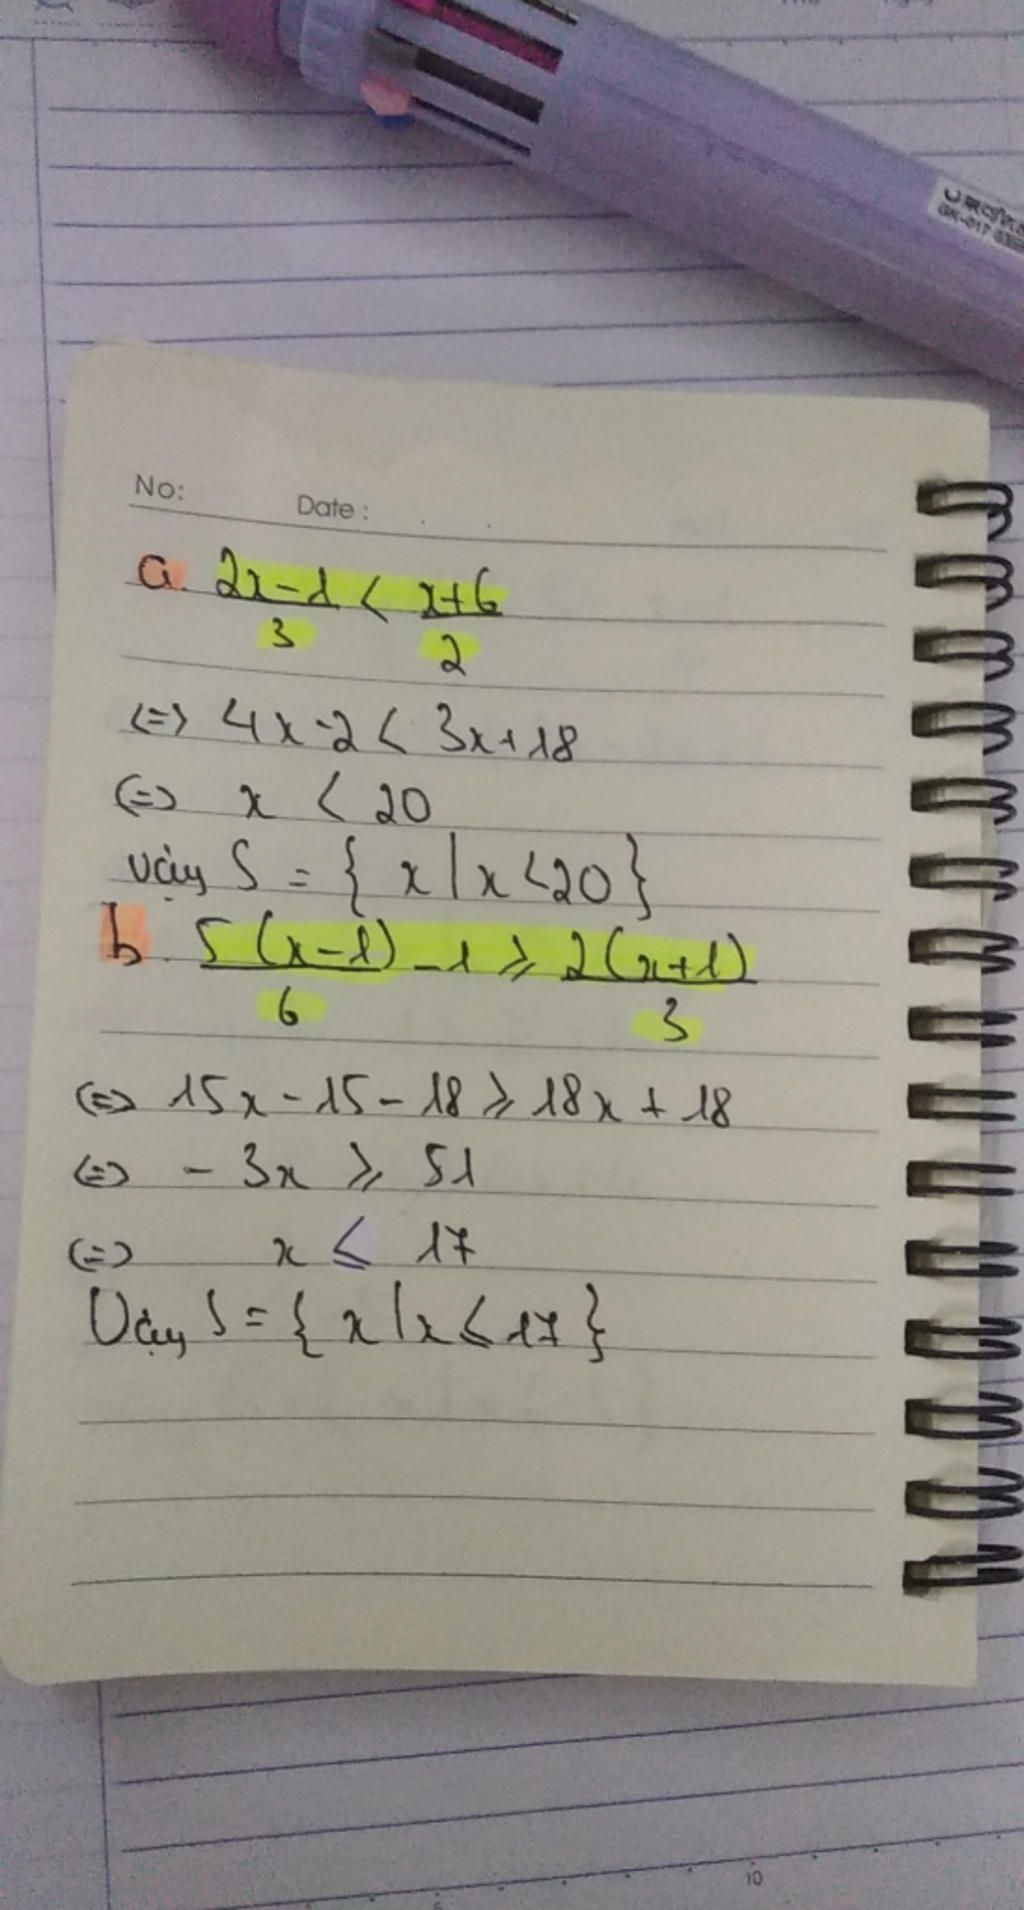 No: Date:
a. 2x-1 < x+6
3 2
<=> 4x-2 < 3x+18
<=> x < 20
vậy S = { x | x <20 }
b. 5(x-1) - 1 ≥ 2(x+1)
6 3
<=> 15x - 15 - 18 ≥ 18x + 18
<=> - 3x ≥ 51
<=> x ≤ 17
Vậy S = { x | x ≤ 17 }
10